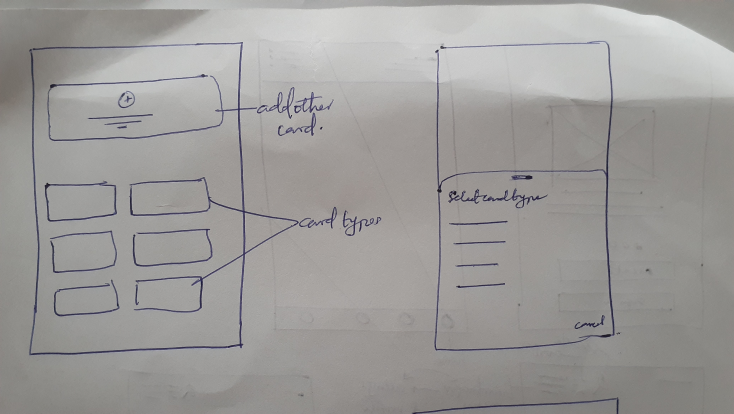 add other
card.
card types
Select card type
cancel